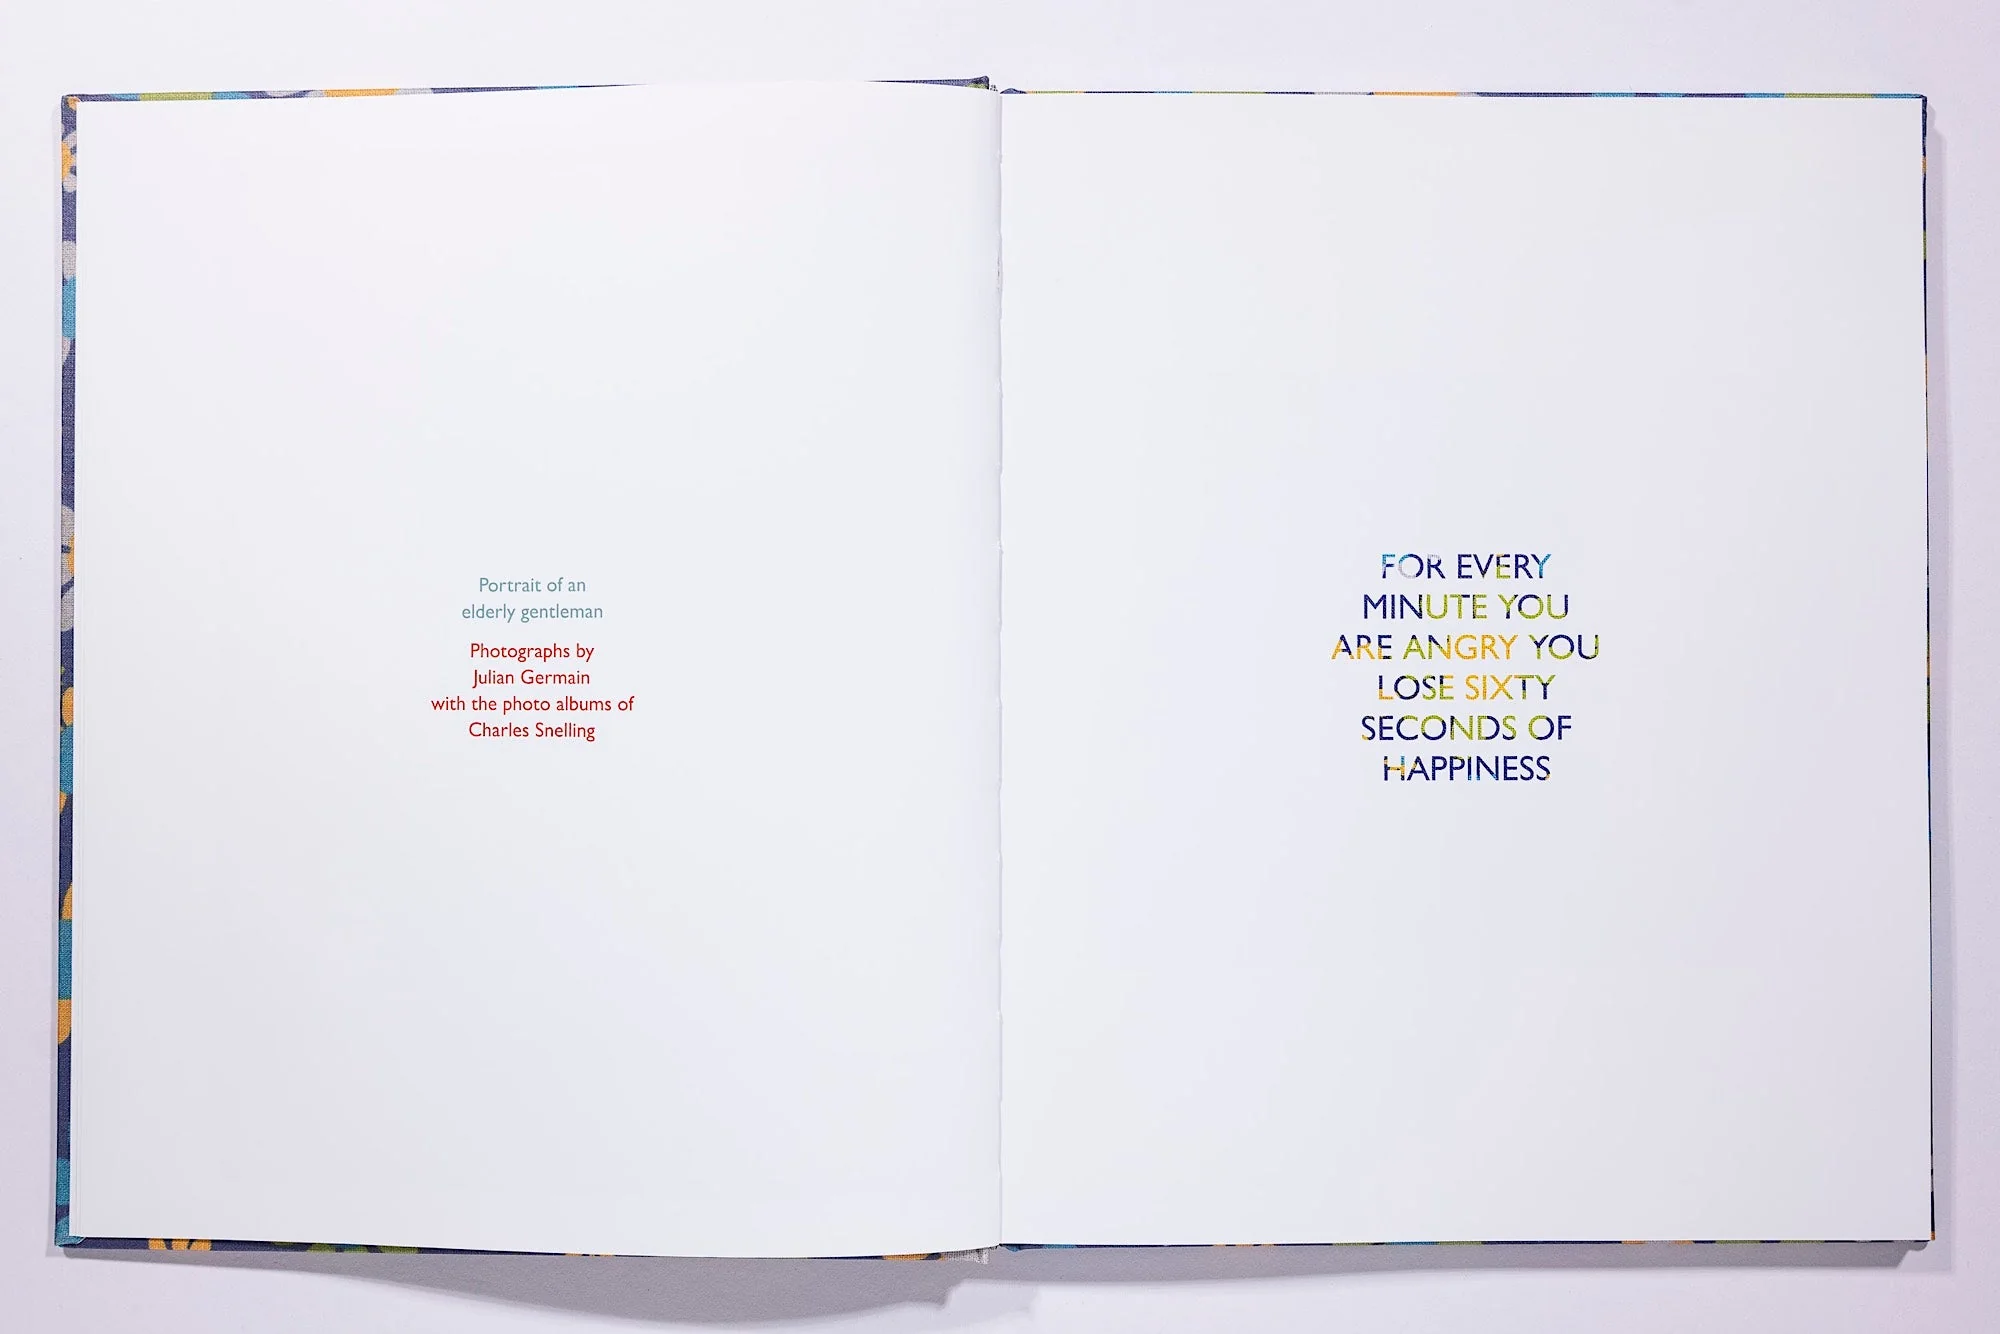 Portrait of an
elderly gentleman
Photographs by
Julian Germain
with the photo albums of
Charles Snelling
FOR EVERY
MINUTE YOU
ARE ANGRY YOU
LOSE SIXTY
SECONDS OF
HAPPINESS